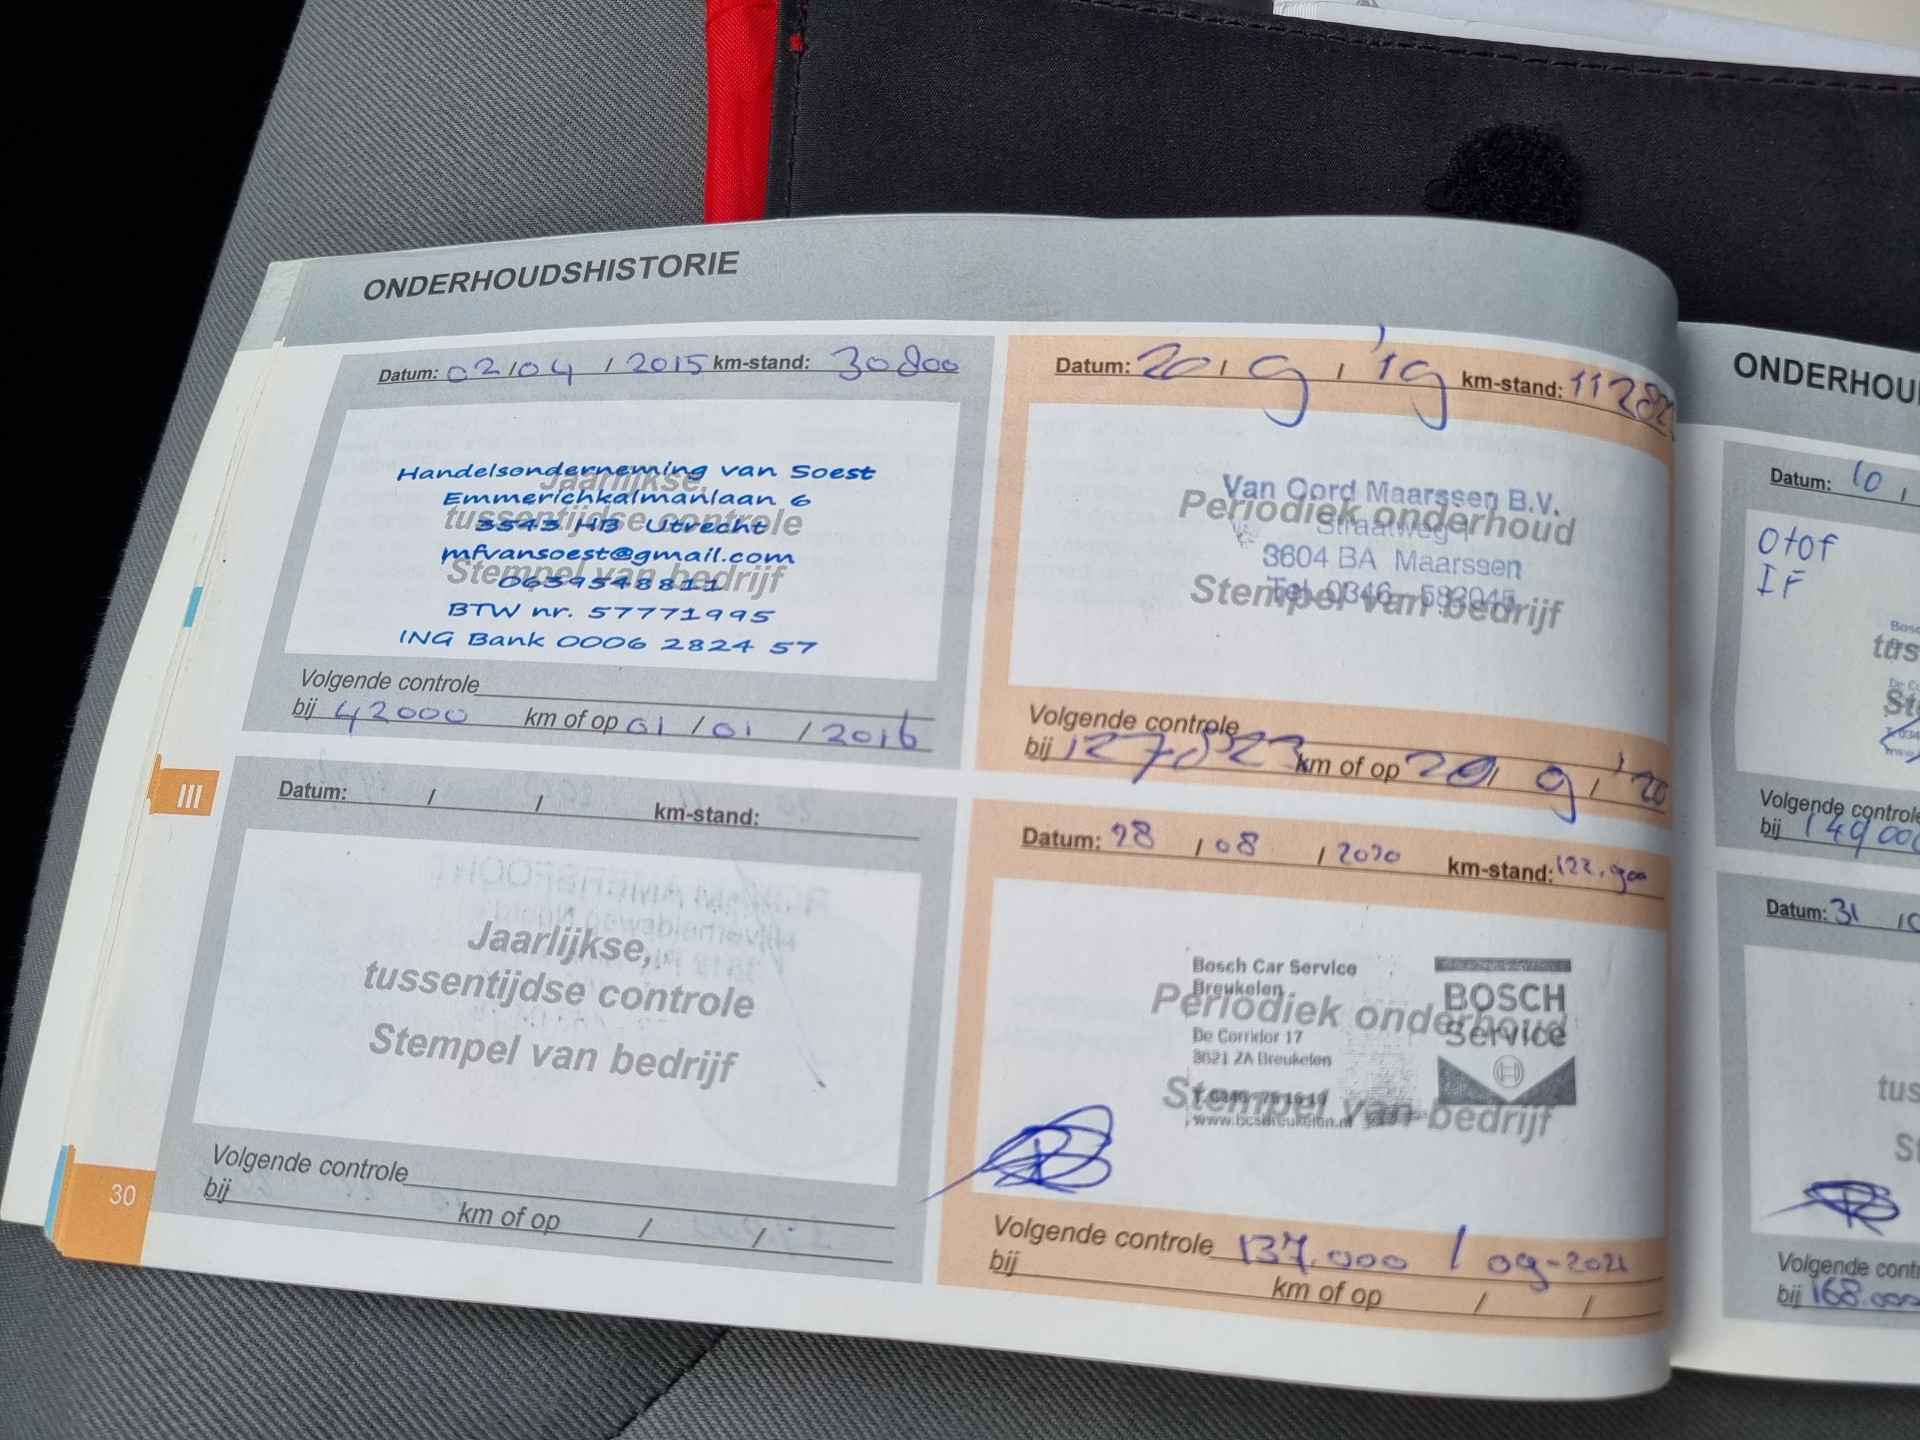 ONDERHOUDSHISTORIE
Datum: 02/04 / 2015 km-stand: 30800
Jaarlijkse,
tussentijdse controle
Stempel van bedrijf
Handelsonderneming van Soest
Emmerichkalmanlaan 6
3543 HB Utrecht
mfvansoest@gmail.com
0639548811
BTW nr. 57771995
ING Bank 0006 2824 57
Volgende controle
bij 42000 km of op 01 / 01 / 2016
Datum: / / km-stand:
Jaarlijkse,
tussentijdse controle
Stempel van bedrijf
Volgende controle
bij km of op / /
III
30
Datum: 20 / 9 / '19 km-stand: 11282
Periodiek onderhoud
Stempel van bedrijf
Van Oord Maarssen B.V.
Straatweg 1
3604 BA Maarssen
Tel. 0346 - 583045
Volgende controle
bij 127823 km of op 20 / 9 / '20
Datum: 28 / 08 / 2020 km-stand: 122.900
Periodiek onderhoud
Stempel van bedrijf
Bosch Car Service
Breukelen
De Corridor 17
3621 ZA Breukelen
www.bcsbreukelen.nl
BOSCH
Service
Volgende controle 137.000 / 09-2021
bij km of op / /
ONDERHOU
Datum: 10 /
Otof
IF
Volgende controle
bij 149000
Datum: 31 /
tus
St
Volgende contr
bij 168.000